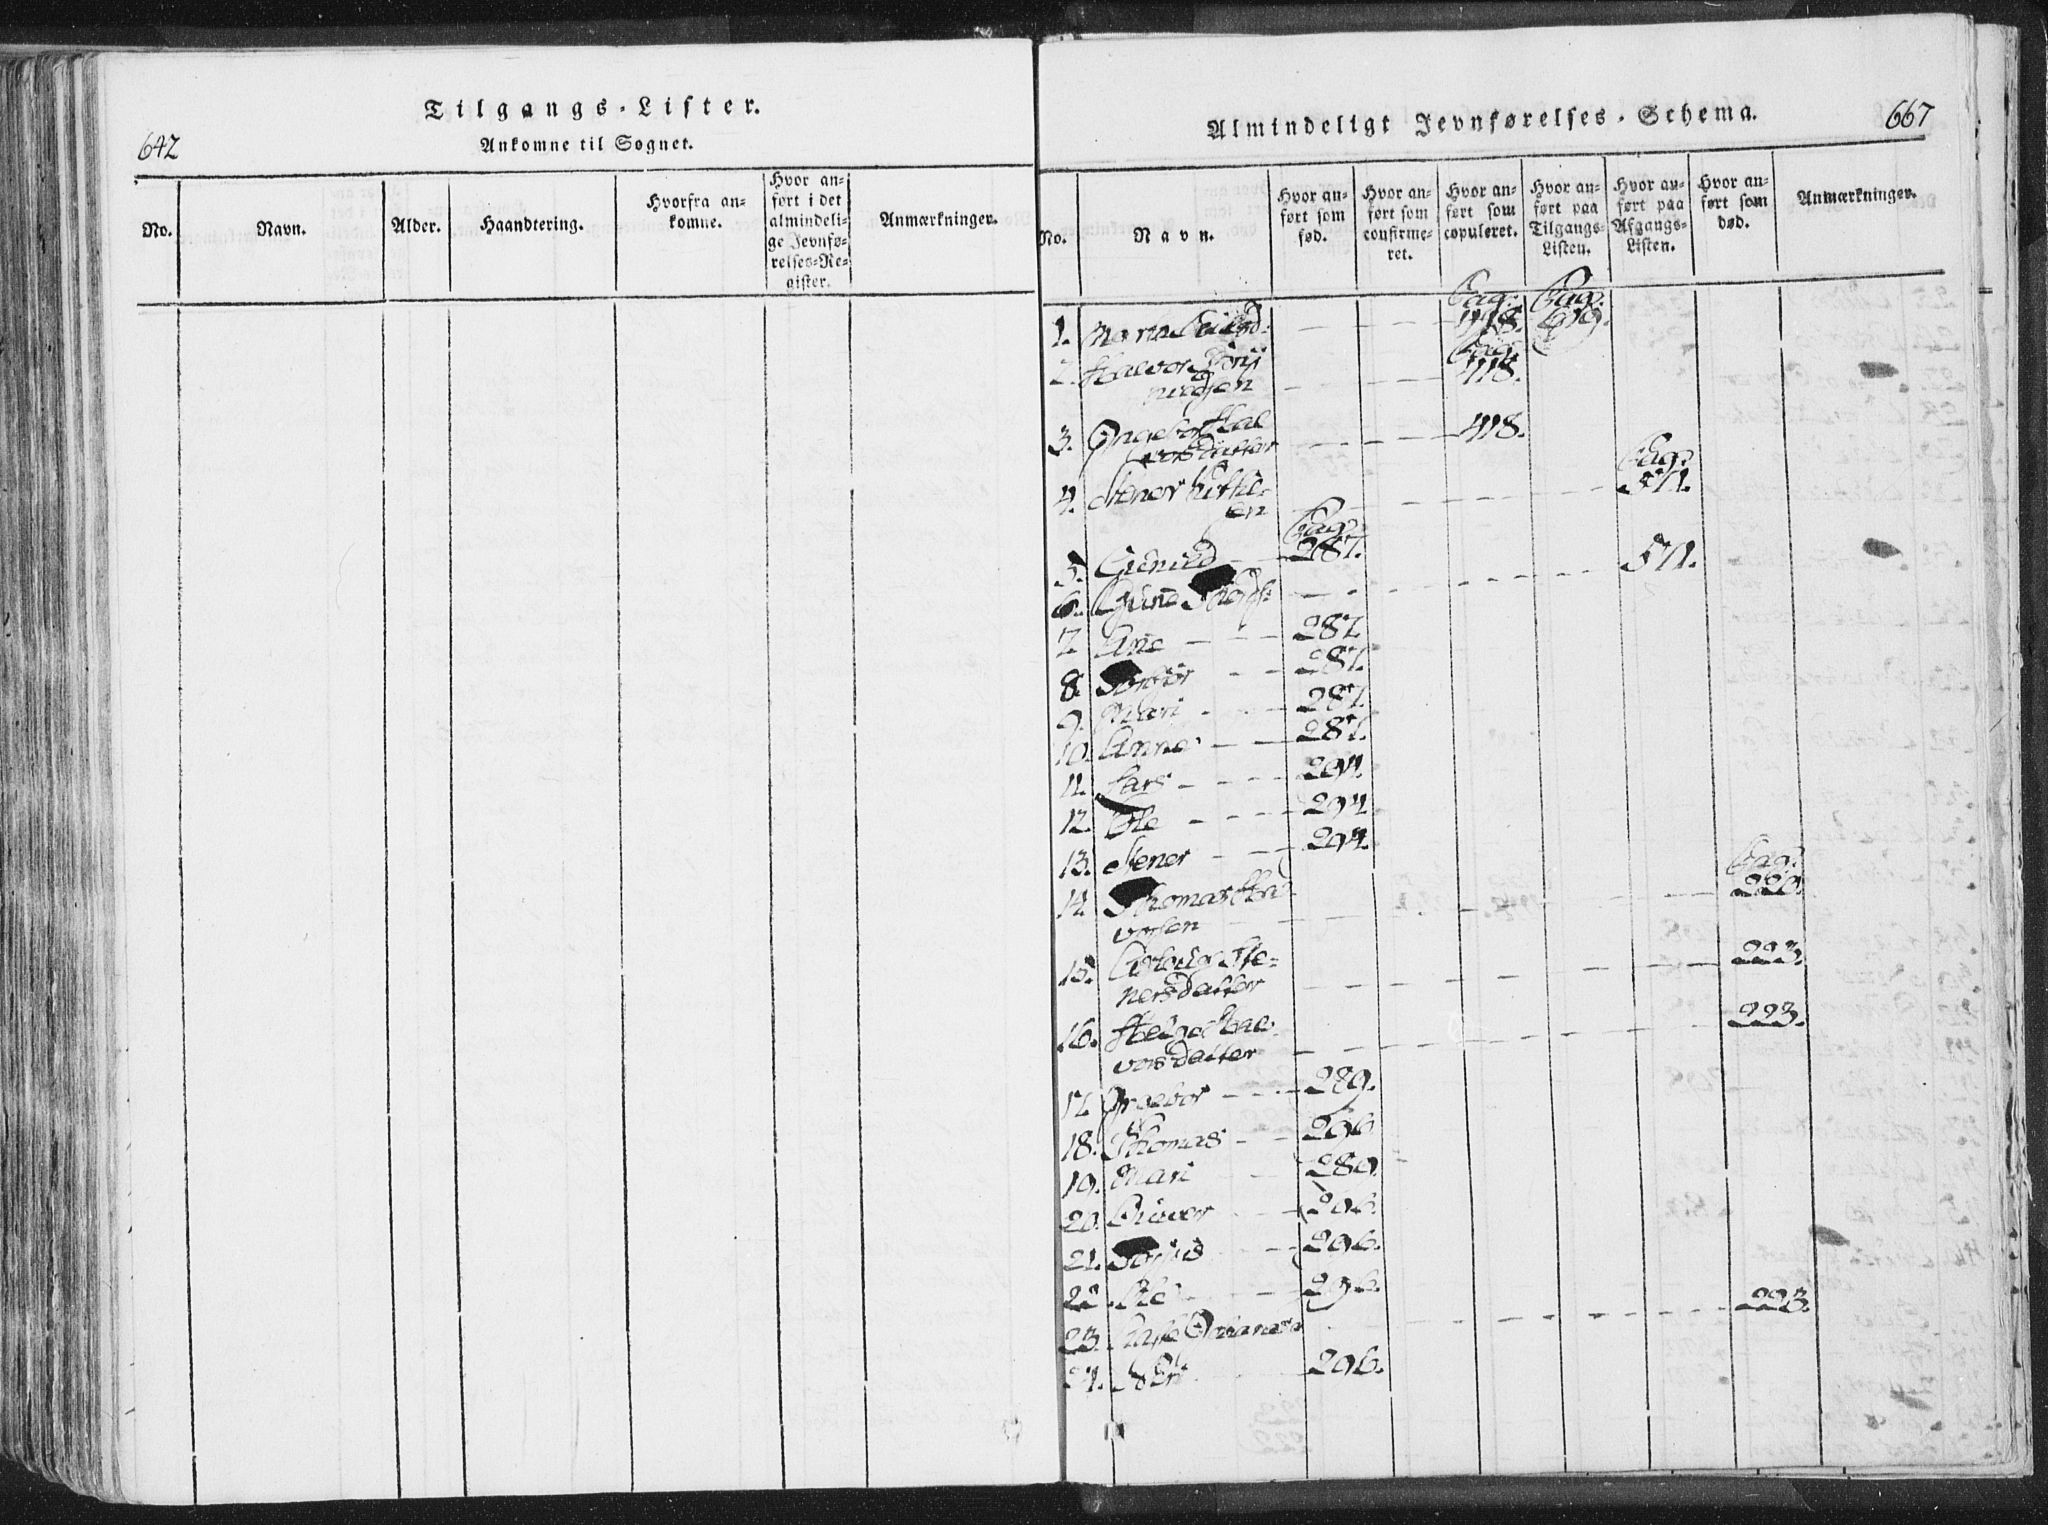 Tilgangs-Lister.
642
Ankomne til Sognet.
No.
Navn.
Alder.
Haandtering.
Hvorfra an-
komne.
Hvor an-
ført i det
almindeli-
ge Jevnfø-
relses-Re-
gister.
Anmærkninger.
Almindeligt Jevnførelses-Schema.
667
No.
Navn.
Hvor an-
ført som
fød.
Hvor an-
ført som
confirme-
ret.
Hvor an-
ført som
copuleret.
Hvor an-
ført paa
Tilgangs-
Listen.
Hvor an-
ført paa
Afgangs-
Listen.
Hvor an-
ført som
død.
Anmærkninger.
Pag. Pag.
1. Maria 418. 619.
Pag.
2. Halvor 418.
3. Ingebor Hal 418.
vorsdatter
Pag.
4. Stener Kittil- 571.
en
Pag.
5. Gunild 287.
6. 571.
7. Ane 287.
8. 287.
9. Mari 287.
10. Anne 287.
11. Lars 294.
12. Ole 294.
13. Stener 294.
Pag.
14. Thomas Hal 220.
vorsen
15. Asloug Ste- 223.
nersdatter
16. Helge Hal- 223.
vorsdatter
17. 289.
18. Thomas 296
19. Mari 289.
20. 296.
21. 296.
22. Ole 296.
23. 223.
24. 296.